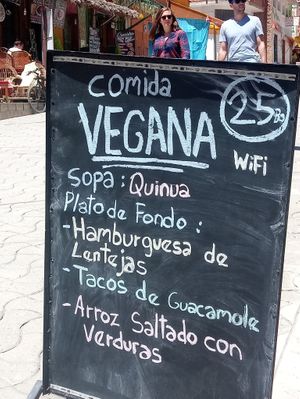 Comida
VEGANA
25 Bs
WiFi
Sopa: Quinua
Plato de Fondo:
- Hamburguesa de
Lentejas
- Tacos de Guacamole
- Arroz Saltado con
Verduras